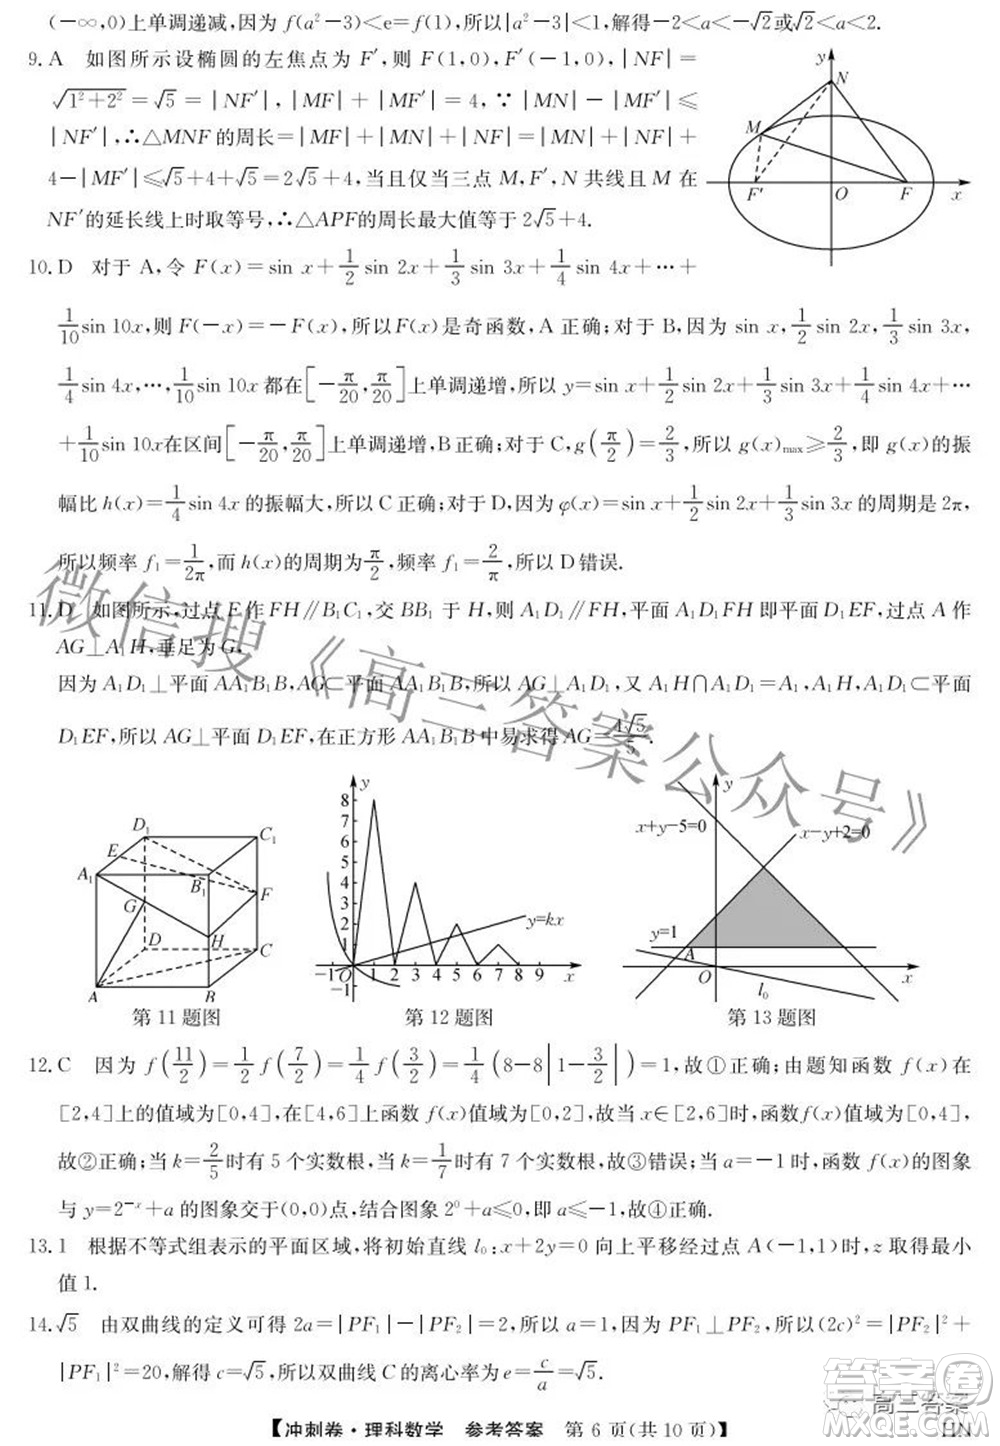 (－∞,0)上单调递减,因为 f(a²－3)＜e＝f(1),所以|a²－3|＜1,解得－2＜a＜－√2或√2＜a＜2.
9. A 如图所示设椭圆的左焦点为 F′,则 F(1,0),F′(－1,0),|NF|＝
√(1²＋2²)＝√5＝|NF′|,|MF|＋|MF′|＝4,∵|MN|－|MF′|≤
|NF′|,∴△MNF 的周长＝|MF|＋|MN|＋|NF|＝|MN|＋|NF|＋
4－|MF′|≤√5＋4＋√5＝2√5＋4,当且仅当三点 M,F′,N 共线且 M 在
NF′的延长线上时取等号,∴△APF的周长最大值等于 2√5＋4.
y N M F′ O F x
10. D 对于 A,令 F(x)＝sin x＋1/2 sin 2x＋1/3 sin 3x＋1/4 sin 4x＋⋯＋
1/10 sin 10x,则 F(－x)＝－F(x),所以F(x)是奇函数,A 正确;对于 B,因为 sin x,1/2 sin 2x,1/3 sin 3x,
1/4 sin 4x,⋯,1/10 sin 10x 都在[－π/20,π/20]上单调递增,所以 y＝sin x＋1/2 sin 2x＋1/3 sin 3x＋1/4 sin 4x＋⋯
＋1/10 sin 10x在区间[－π/20,π/20]上单调递增,B 正确;对于 C,g(π/2)＝2/3,所以 g(x)max≥2/3,即 g(x)的振
幅比 h(x)＝1/4 sin 4x 的振幅大,所以 C 正确;对于 D,因为 φ(x)＝sin x＋1/2 sin 2x＋1/3 sin 3x 的周期是 2π,
所以频率 f₁＝1/2π,而 h(x)的周期为π/2,频率 f₁＝2/π,所以 D 错误.
11. D 如图所示,过点 E 作 FH∥B₁C₁,交 BB₁ 于 H,则 A₁D₁∥FH,平面 A₁D₁FH 即平面 D₁EF,过点 A 作
AG⊥A₁H,垂足为 G,
因为 A₁D₁⊥平面 AA₁B₁B,AG⊂平面 AA₁B₁B,所以 AG⊥A₁D₁,又 A₁H∩A₁D₁＝A₁,A₁D₁⊂平面
D₁EF,所以 AG⊥平面 D₁EF,在正方形 AA₁B₁B 中易求得 AG＝4√5/5.
D₁ C₁ E A₁ B₁ F G H D C A B
第 11 题图
y 8 7 6 5 4 3 2 1 －1 O 1 2 3 4 5 6 7 8 9 x －1 y＝kx
第 12 题图
y x＋y－5＝0 x－y＋2＝0 y＝1 A O l₀ x
第 13 题图
12. C 因为 f(11/2)＝1/2 f(7/2)＝1/4 f(3/2)＝1/4(8－8|1－3/2|)＝1,故①正确;由题知函数 f(x)在
[2,4]上的值域为[0,4],在[4,6]上函数 f(x)值域为[0,2],故当 x∈[2,6]时,函数 f(x)值域为[0,4],
故②正确;当 k＝2/5时有 5 个实数根,当 k＝1/7时有 7 个实数根,故③错误;当 a＝－1 时,函数 f(x)的图象
与 y＝2⁻ˣ＋a 的图象交于(0,0)点,结合图象 2⁰＋a≤0,即 a≤－1,故④正确.
13. 1 根据不等式组表示的平面区域,将初始直线 l₀:x＋2y＝0 向上平移经过点 A(－1,1)时,z 取得最小
值 1.
14. √5 由双曲线的定义可得 2a＝|PF₁|－|PF₂|＝2,所以 a＝1,因为 PF₁⊥PF₂,所以(2c)²＝|PF₂|²＋
|PF₁|²＝20,解得 c＝√5,所以双曲线 C 的离心率为 e＝c/a＝√5.
【冲刺卷·理科数学 参考答案 第 6 页(共 10 页)】
HN
微信搜《高三答案公众号》
高三答案
答案圈
MXQE.COM